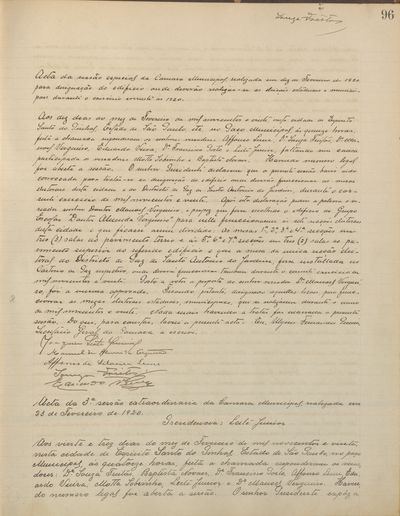 96
Souza Freitas
Acta da sessão especial da Camara Municipal, realizada em dez de Fevereiro de 1920
para designação do edificio onde deverão realizar-se as eleições estadoaes e munici-
paes durante o corrente anno de 1920.
Aos dez dias do mez de Fevereiro de mil novecentos e vinte, nesta cidade de Espirito
Santo do Pinhal, Estado de São Paulo, etc, no Paço Municipal, ás quinze horas,
feita a chamada responderam os senhores vereadores: Affonso Leme, Dr. Souza Freitas, Dr. Ma-
noel Vergueiro, Eduardo Vieira, Dr. Francisco Porto e Leite Junior, faltando sem causa
participada os vereadores Motta Sobrinho e Baptista Novaes. Havendo numero legal
foi aberta a sessão. O senhor Presidente declarou que a presente sessão havia sido
convocada para tratar-se da designação do edificio onde devem funccionar as mezas
eleitoraes desta cidade e do Districto de Paz de Santo Antonio do Jardim, durante o cor-
rente exercicio de mil novecentos e vinte. Após esta declaração, pediu a palavra o ve-
reador senhor Doutor Manoel Vergueiro e propoz que fosse escolhido o edificio do Grupo
Escolar "Doutor Almeida Vergueiro" para nelle funccionarem as sete secções eleitoraes
desta cidade e que ficasse assim dividido: As mezas 1ª, 2ª, 3ª e 4ª secções em
tres (3) salas no pavimento terreo e as 5ª, 6ª e 7ª secções em tres (3) salas do pa-
vimento superior do referido edificio; e que a meza da unica secção elei-
toral do Districto de Paz de Santo Antonio do Jardim, fosse installada no
Cartorio de Paz respectivo, onde devem funccionar tambem durante o corrente exercicio de
mil novecentos e vinte. Posta a votos a proposta do senhor vereador Dr. Manoel Verguei-
ro, foi a mesma approvada. Ficando, portanto, designados aquelles locaes para funcci-
onarem as mezas eleitoraes, estadoaes, municipaes, que se realizarem durante o anno
de mil novecentos e vinte. Nada mais havendo a tratar foi encerrada a presente
sessão. Do que, para constar, lavrei a presente acta. Eu,
Secretario Geral da Camara a escrevi.
Joaquim Leite Junior
Manuel de Almeida Vergueiro
Affonso de Oliveira Leme
Souza Freitas
Eduardo Vieira
Acta da 3ª sessão extraordinaria da Camara Municipal, realizada em
23 de Fevereiro de 1920.
Presidencia: Leite Junior
Aos vinte e tres dias do mez de Fevereiro de mil novecentos e vinte,
nesta cidade de Espirito Santo do Pinhal, Estado de São Paulo, no paço
Municipal, ás quatorze horas, feita a chamada responderam os verea-
dores: Dr. Souza Freitas, Baptista Novaes, Dr. Francisco Porto, Affonso Leme, Edu-
ardo Vieira, Motta Sobrinho, Leite Junior e Dr. Manoel Vergueiro. Haven-
do numero legal foi aberta a sessão. O senhor Presidente expôz a